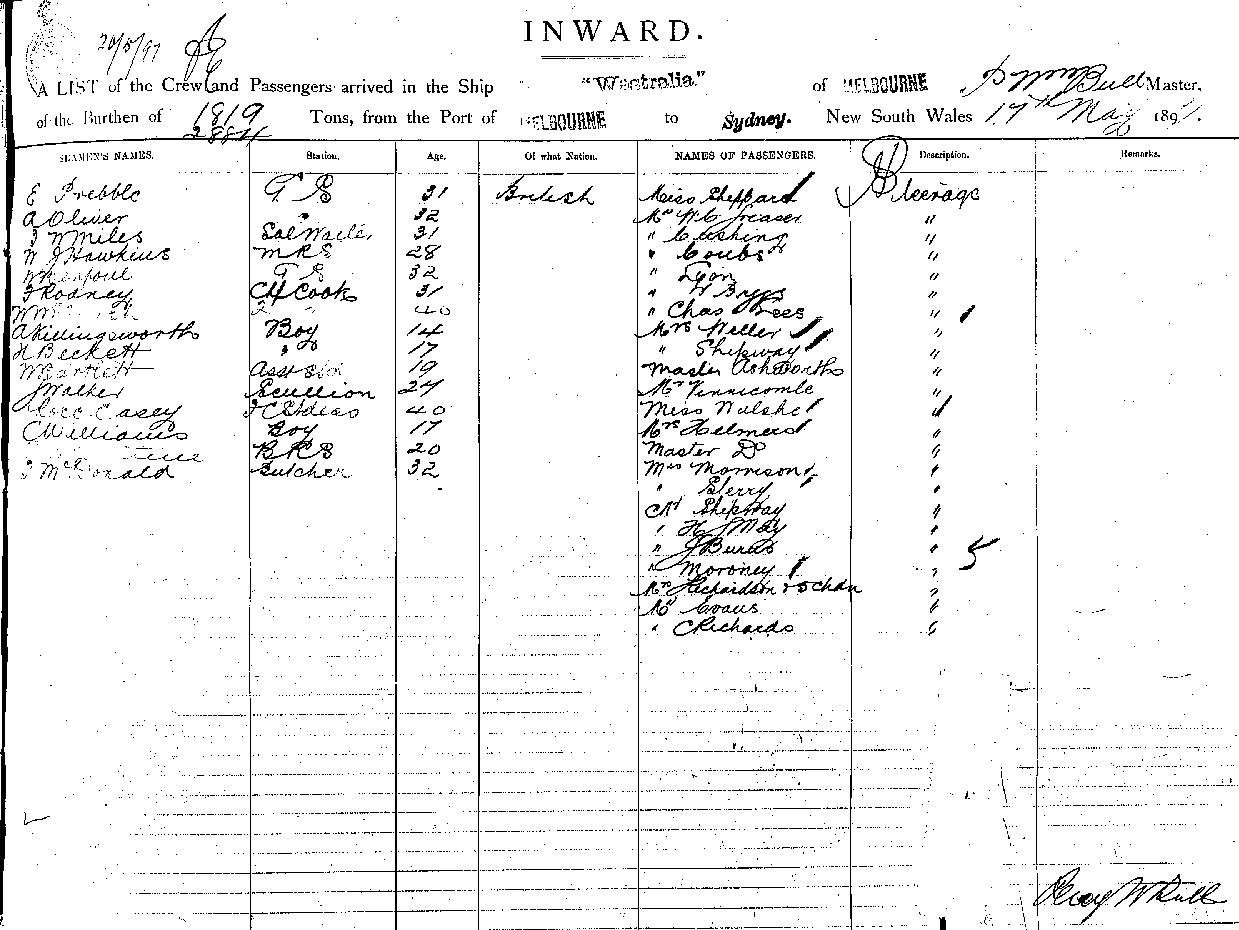 INWARD.
20/5/97
A LIST of the Crew and Passengers arrived in the Ship "Westralia" of MELBOURNE Bull Master,
of the Burthen of 1819 2884 Tons, from the Port of MELBOURNE to Sydney. New South Wales 17th May 1897.
SEAMEN'S NAMES. Station. Age. Of what Nation. NAMES OF PASSENGERS. Description. Remarks.
E Prebble T S 31 British Miss Sheppard Steerage
A Oliver " 32 Mr W C Greaser "
J W Miles Sal Waiter 31 " Cushing "
W J Hawkins M R S 28 " Coubs "
T S 32 " Lyon "
F Rodney Ch Cook 31 " W Briggs "
40 " Chas Rees " 1
A Killingsworth Boy 14 Mrs Weller "
H Beckett " 17 " Shepway "
W Bartlett Asst 19 Master Ashworth "
J Walker Scullion 24 Mr Vinnicombe "
Casey 40 Miss Walshe "
C Williams Boy 17 Mrs Helmers "
B R S 20 Master Do "
J McDonald Butcher 32 Mrs Morrison "
" Sterry "
Mr Shepway "
" H J May "
" J Burns " 5
" Moroney "
Mrs Richardson & 5 Chdn "
Mr Evans "
" C Richards "